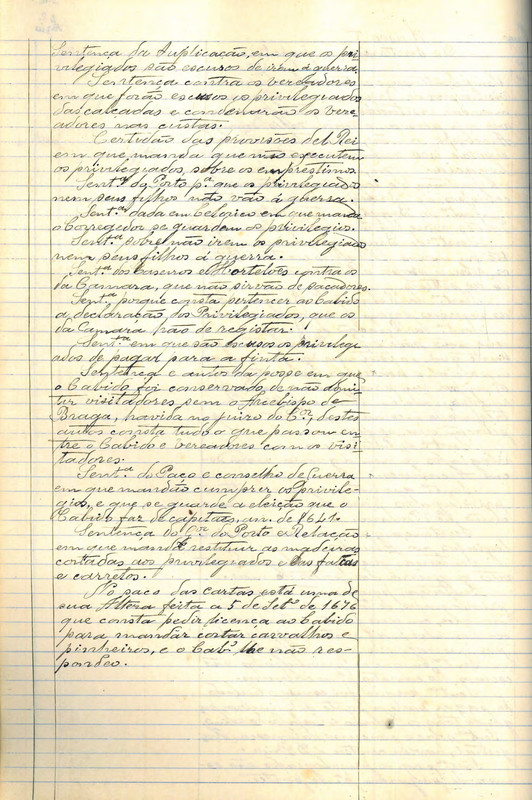 Sentença da Suplicação, em que os pri-
vilegiados são escusos de irem á guerra.
Sentença contra os vereadores
em que forão escusos os privilegiados
das calçadas e condemarão os vere-
adores nas custas.
Certidão das provisões del Rei
em que manda que não executem
os privilegiados, sobre os emprestimos.
Sentª do Porto pª que os privilegiados
nem seus filhos não vão á guerra.
Sentª dada em Celorico em que manda
o Corregedor se guardem os privilegios.
Sentª sobre não irem os privilegiados
nem seus filhos á guerra.
Sentª dos Caseiros e Hortelões contra os
da Camara, que não sirvão de sacadores.
Sentª porque consta pertencer ao Cabido
a declaração dos Privilegiados, que os
da Camara hão de registar.
Sentª em que são escusos os privilegi
ados de pagar para a finta.
Sentença e autos da posse em que
o Cabido foi conservado, de não admi-
tir visitadores sem o Arcebispo de
Braga, havida no juizo da Cª, destes
autos consta tudo o que passou en-
tre o Cabido e vereadores com os visi-
tadores.
Sentª do Paço e conselho de Guerra
em que mandão cumprir os privile-
gios, e que se guarde a eleição que o
Cabido faz de capitães, an. de 1641.
Sentença do do Porto e Relação
em que manda restituir as madeiras
cortadas aos privilegiados e das faltas
e carretos.
No saco das cartas está uma de
sua Alteza feita a 5 de Setº de 1676
que consta pedir licença ao Cabido
para mandar cortar carvalhos e
pinheiros, e o Cabº lhe não res-
pondeo.